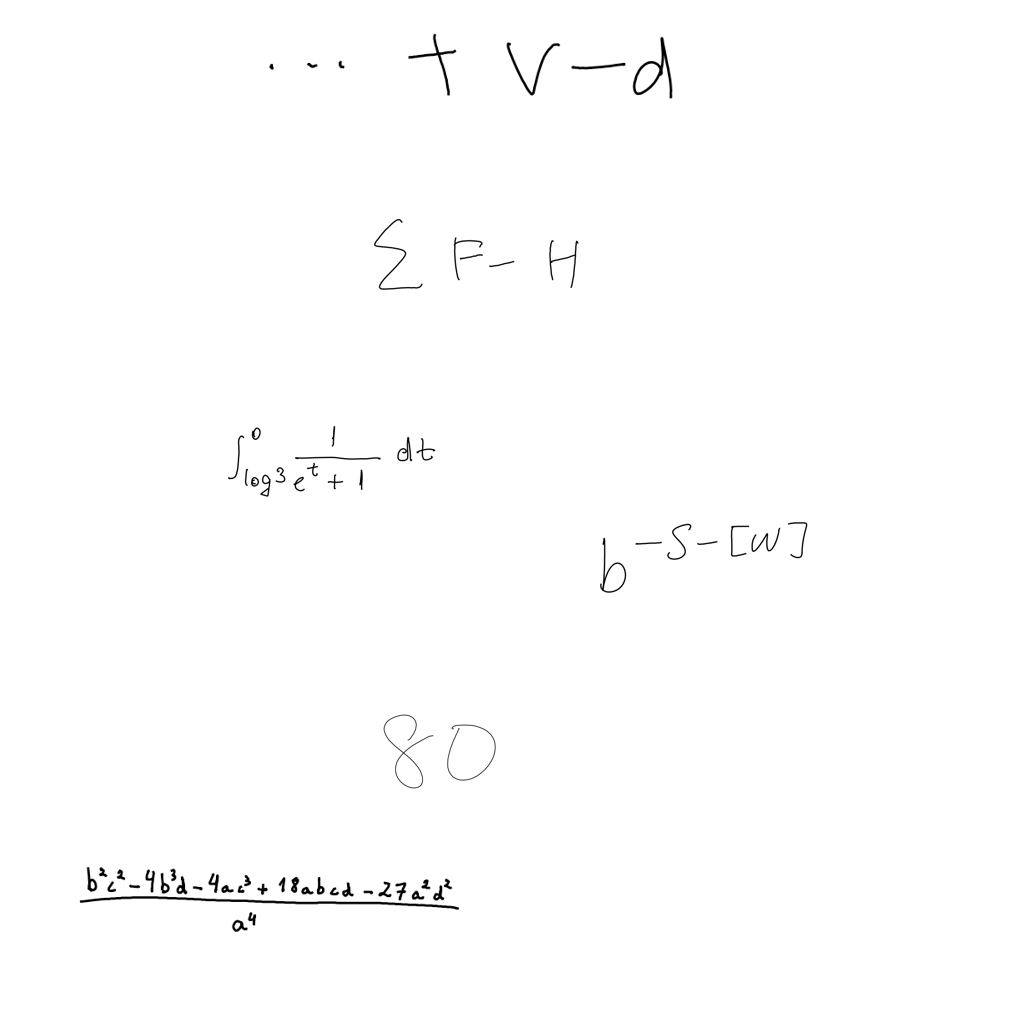 ··· + V - d
∑ F - H
∫_{log 3}^{0} \frac{1}{e^{t} + 1} dt
b^{-S-[W]}
80
\frac{b^{2}c^{2} - 4b^{3}d - 4ac^{3} + 18abcd - 27a^{2}d^{2}}{a^{4}}